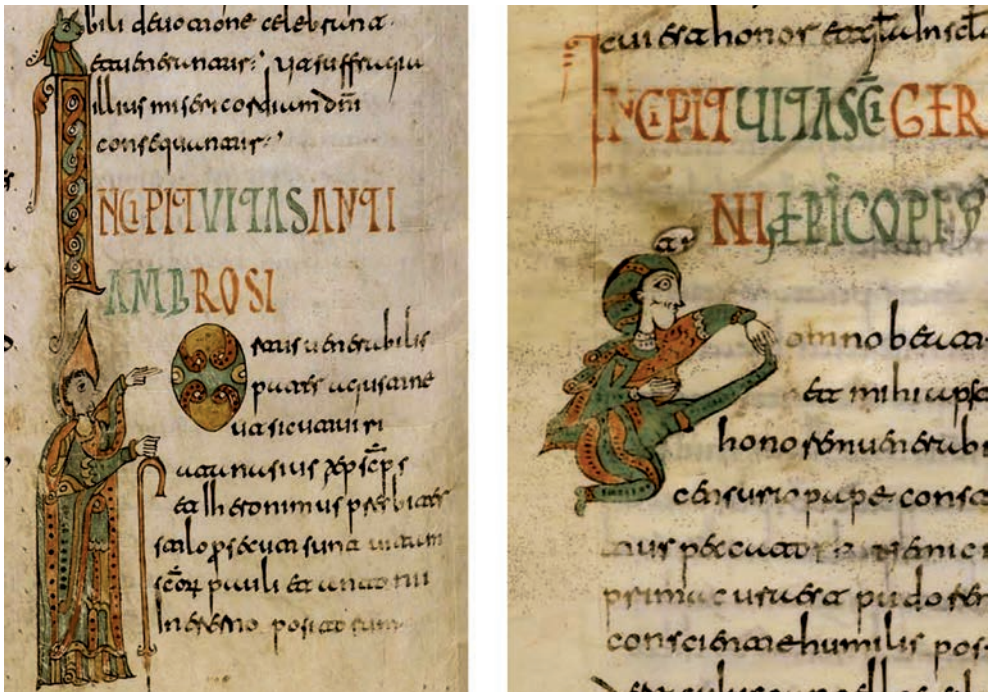 bili deuotione celebrant
et uenerantur: ut suffragia
illius misericordiam dni
consequantur:
INCIPIT VITA SANTI
AMBROSI
Ortaris uenerabilis
pater agustine
ut sicut uiri
atanasius epscps
et iheronimus presbiter
stilo prosecuti sunt uitam
scor pauli et antonii
In eremo positorum
cui est honor et gla In scla
INCIPIT VITA SCI GER
NI EPICOPI
Domno beat
et mihi
honorem uenerabi
censurio pape const
tius peccator
prima
conscientie humilis pos